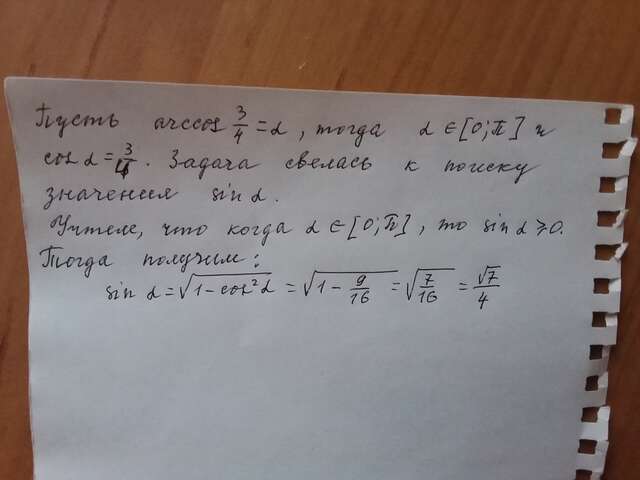 Пусть arccos 3/4 = α, тогда α ∈ [0; π] и
cos α = 3/4. Задача свелась к поиску
значения sin α.
Учтем, что когда α ∈ [0; π], то sin α ⩾ 0.
Тогда получим:
sin α = √(1 - cos² α) = √(1 - 9/16) = √(7/16) = √7/4